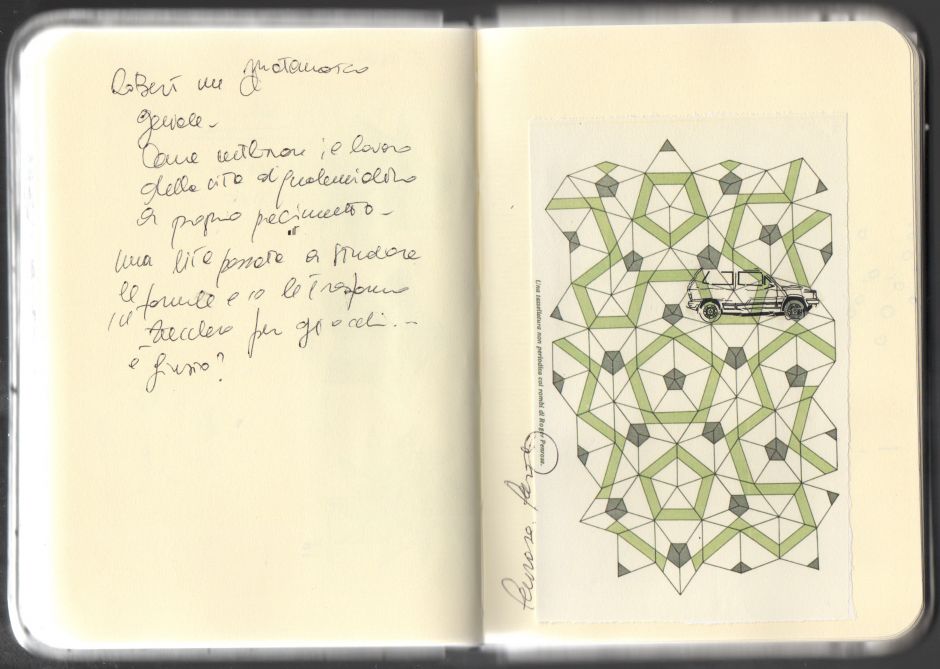 Robert un matematico
geniale.
Come utilizzare il lavoro
della vita di qualcun altro
a proprio piacimento.
una vita passata a studiare
le formule e io le trasformo
in per giochi...
è giusto?
Una tassellatura non periodica coi rombi di Roger Penrose.
Penrose,